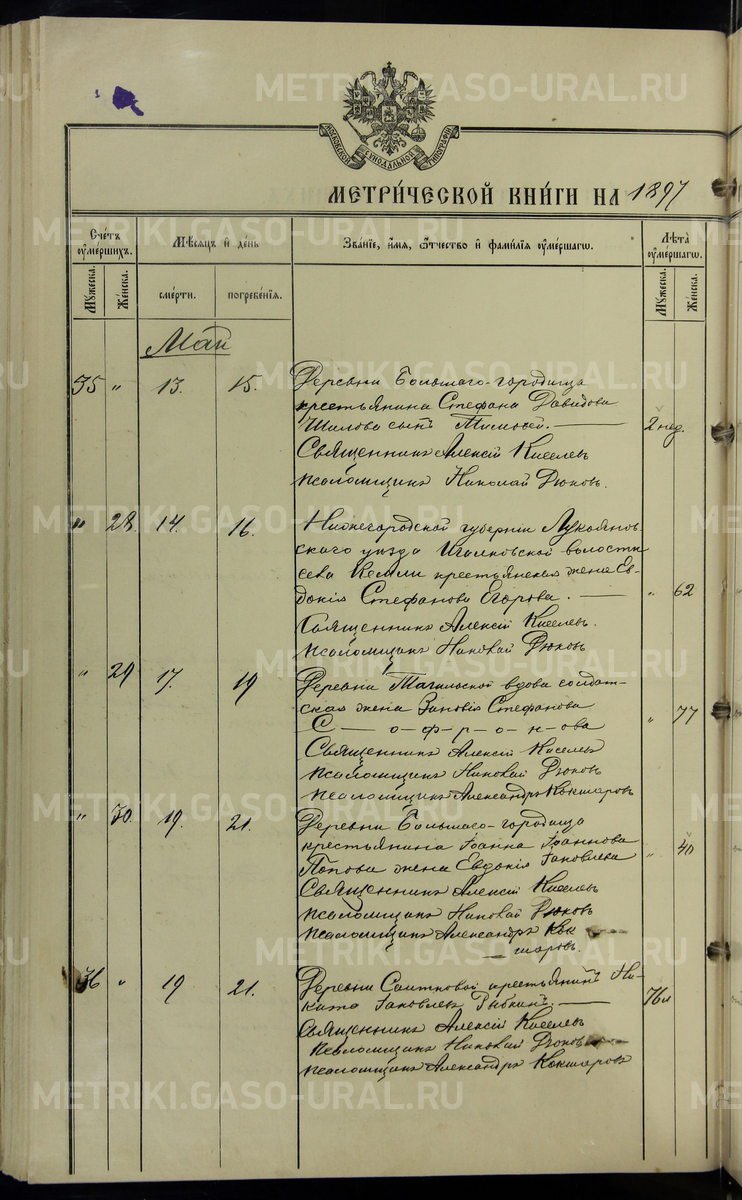 МОСКОВСКОЙ СѴНОДАЛЬНОЙ ТИПОГРАФІИ
МЕТРИ́ЧЕСКОЙ КНИ́ГИ НА 1897
Сче́тъ ᲂу҆ме́ршихъ.
Мѣ́сѧцъ и҆ де́нь
Зва́нїе, и҆́мѧ, ѻ҆́тчество и҆ фами́лїѧ ᲂу҆ме́ршагѡ.
Лѣта̀ ᲂу҆ме́ршагѡ.
Мꙋ́жеска.
Же́нска.
сме́рти.
погребе́нїѧ.
Мꙋ́жеска.
Же́нска.
Май
35 " 13. 15. Деревни Большаго-городища
крестьянина Стефана Давидова
Шилова сынъ Тимофей. — 2 нед.
Священникъ Алексій Киселевъ
псаломщикъ Николай Дюковъ.
" 28. 14. 16. Нижегородской губерніи Лукоянов-
скаго уѣзда волости
села Кемли крестьянская жена Ев-
докія Стефанова Егорова. — " 62
Священникъ Алексій Киселевъ.
псаломщикъ Николай Дюковъ
" 29 17. 19 Деревни Тагильской вдова солдат-
ская жена Зиновія Стефанова
С—о-ф-р-о-н-ова " 77
Священникъ Алексій Киселевъ
псаломщикъ Николай Дюковъ
псаломщикъ Александръ Кокшаровъ
" 30. 19. 21. Деревни Большаго-городища
крестьянина Іоанна Іоаннова
Попова жена Евдокія Іаковлева " 40
Священникъ Алексій Киселевъ
псаломщикъ Николай Дюковъ
псаломщикъ Александръ Кок
шаровъ.
36 " 19 21. Деревни Саитковой крестьянинъ Ни-
кита Іаковлевъ Рябкинъ. — 76 л
Священникъ Алексій Киселевъ
псаломщикъ Николай Дюковъ
псаломщикъ Александръ Кокшаровъ
METRIKI.GASO-URAL.RU